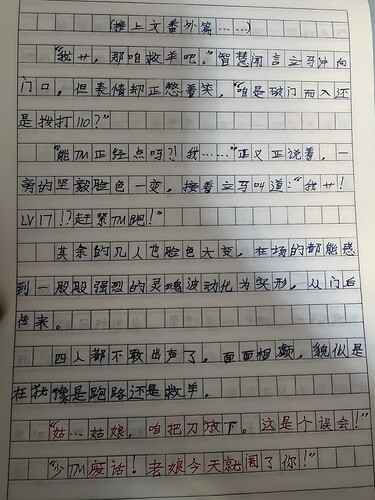 (接上文番外篇……)
“我艹，那咱救羊吧。”智慧闻言立马冲向
门口，但表情却正憋着笑，“咱是破门而入还
是拨打110？”
“能TM正经点吗?! 我……”正义正说着，一
旁的坚毅脸色一变，接着立马叫道：“我艹！
LV17!?赶紧TM跑！”
其余的几人也脸色大变，在场的都能感
到一股股强烈的灵魂波动化为实形，从门后
传来。
四人都不敢出声了，面面相觑，貌似是
在犹豫是跑路还是救羊。
“姑…姑娘，咱把刀放下。这是个误会！”
“少TM废话！老娘今天就阉了你！”